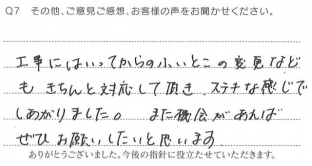 Q7 その他、ご意見ご感想、お客様の声をお聞かせください。
工事にはいってからのふいとこの変更など
もきちんと対応して頂き、ステキな感じで
しあがりました。また機会があれば
ぜひお願いしたいと思います
ありがとうございました。今後の指針に役立たせていただきます。